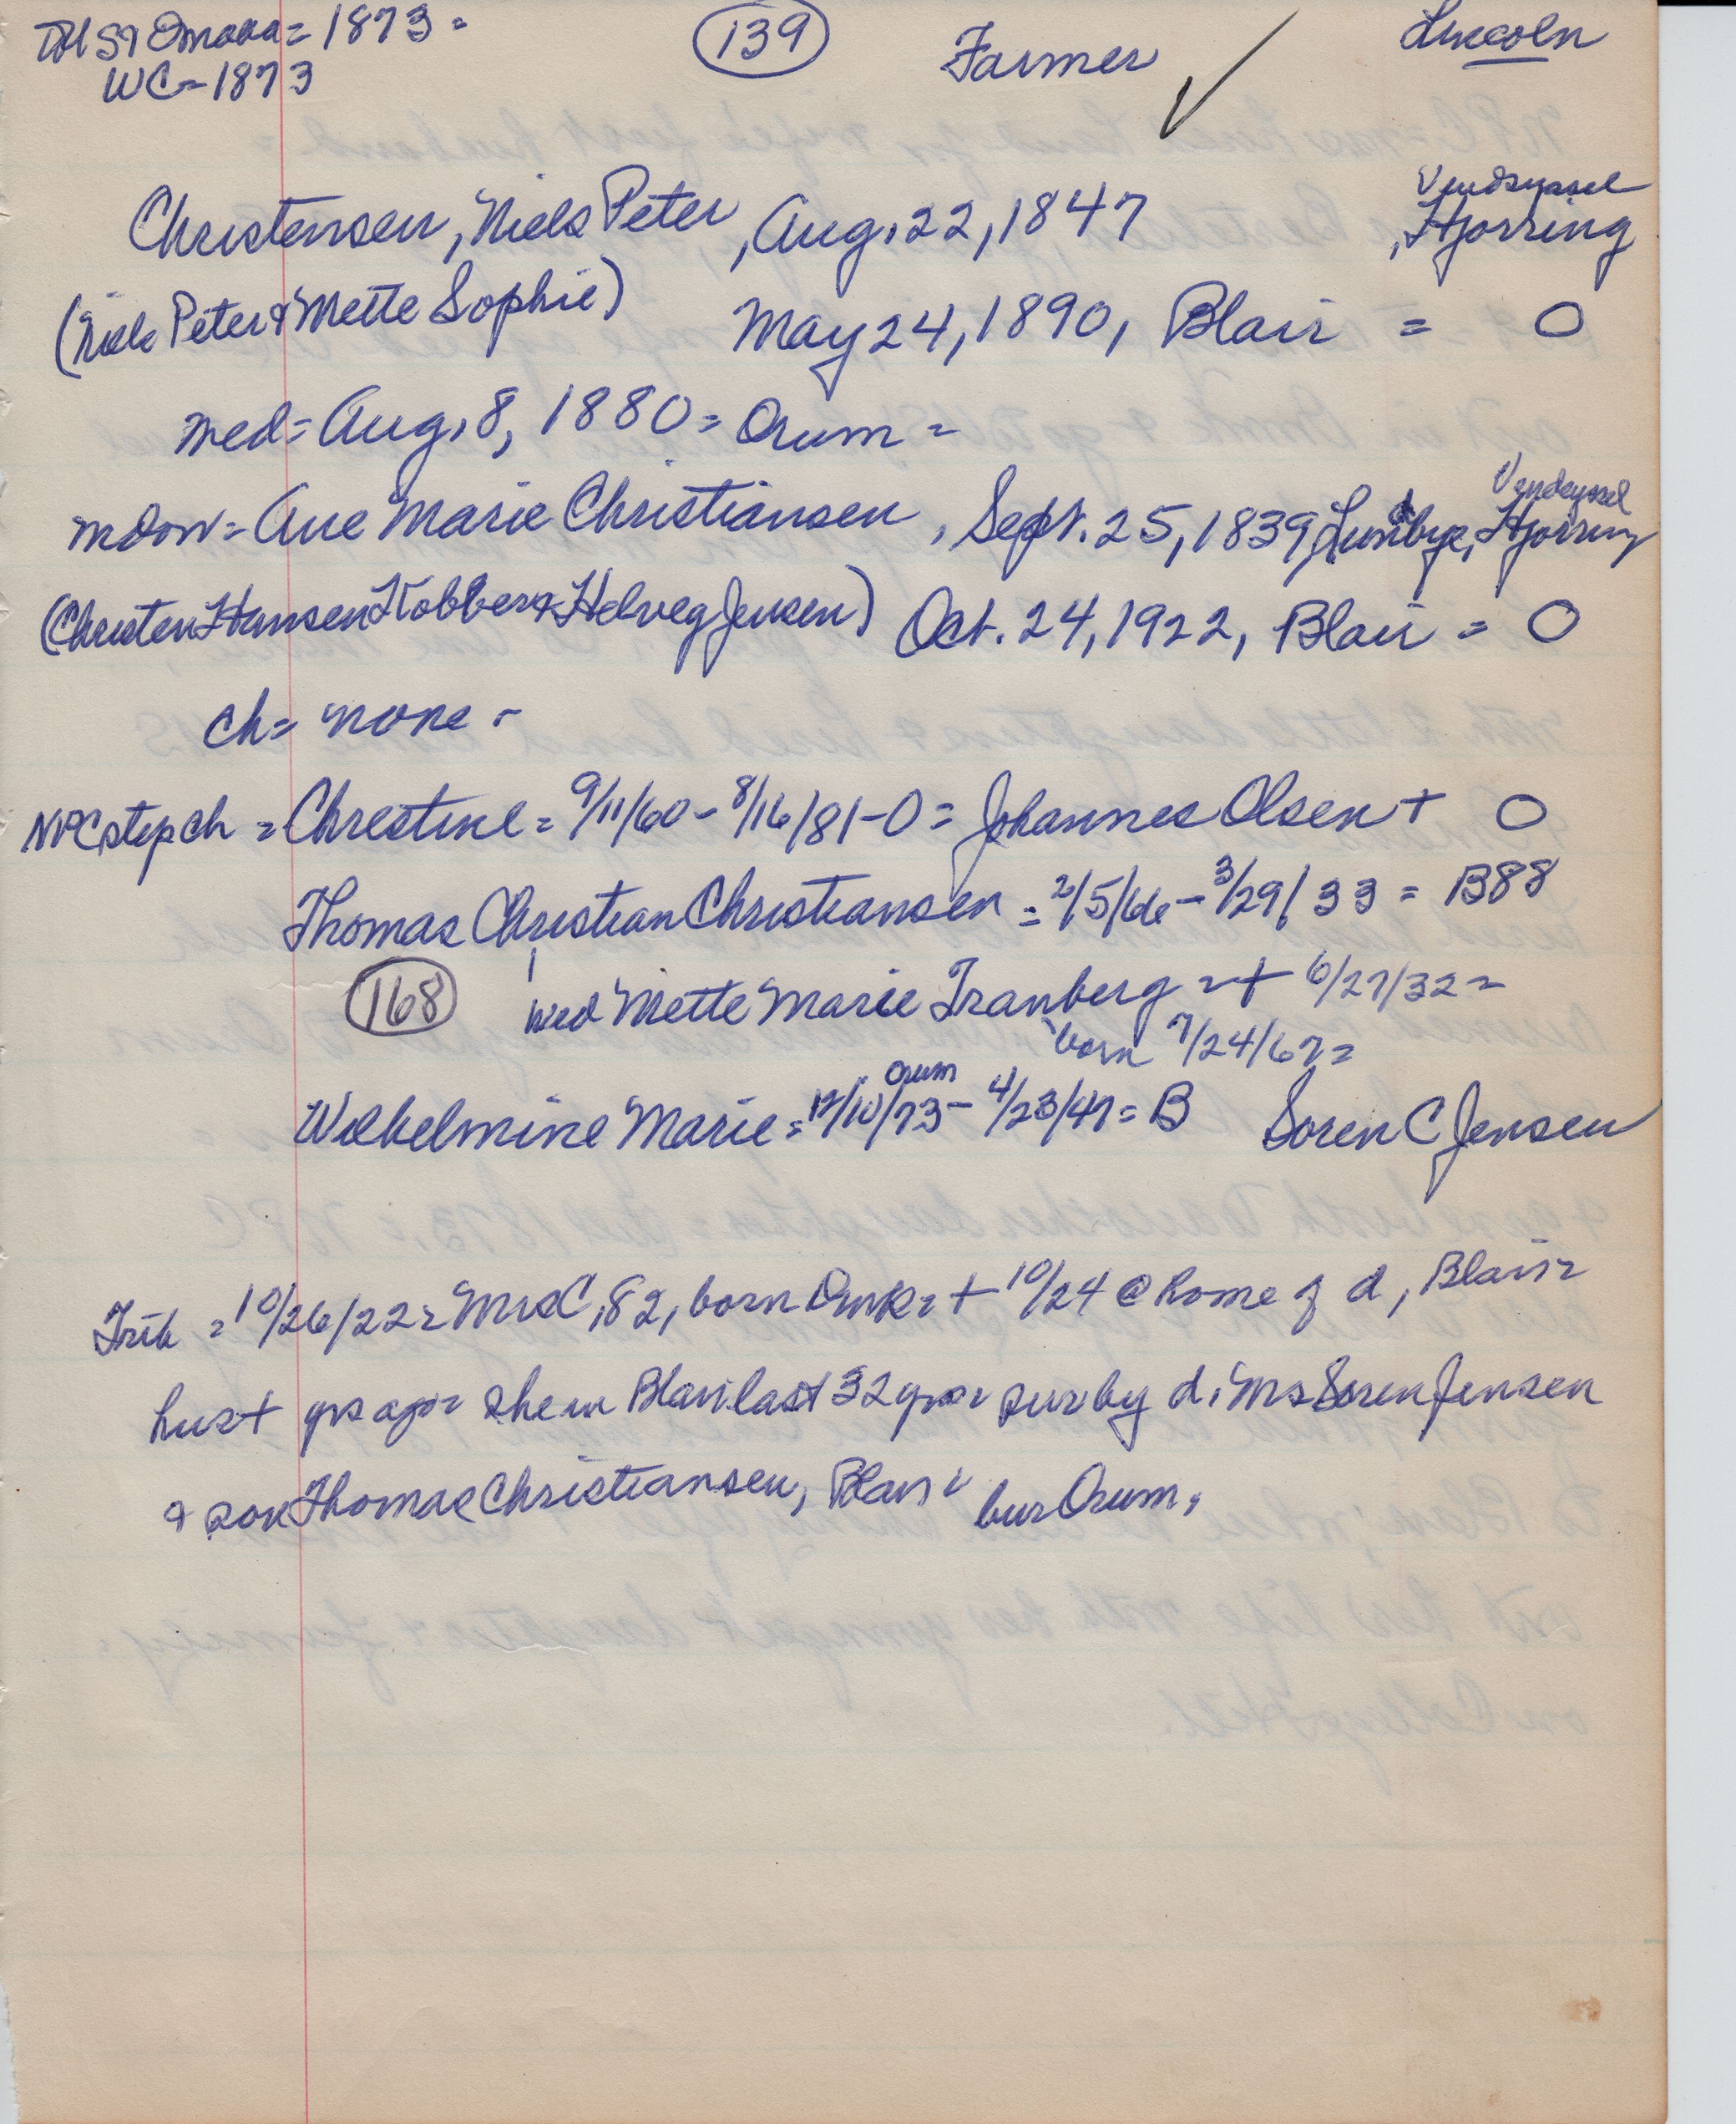 Omaha = 1873 =
WC - 1873
139
Farmer
Lincoln
Christensen, Niels Peter, Aug. 22, 1847
Vendsyssel
, Hjorring
(Niels Peter & Mette Sophie)
May 24, 1890, Blair = O
med = Aug. 8, 1880 = Orum =
= Ane Marie Christiansen, Sept. 25, 1839, Lundbye, Hjorring
Vendsyssel
(Christen Hansen Kobber & Helveg Jensen) Oct. 24, 1922, Blair = O
ch = none -
NPC step ch = Chrestine = 9/11/60 - 8/16/81 - O = Johannes Olsen + O
Thomas Christian Christiansen = 2/5/66 - 3/29/33 = B88
168
wed Mette Marie Tranberg = + 6/27/32 =
born 7/24/67 =
Orum
Wilhelmine Marie = 12/10/73 - 4/23/47 = B Soren C Jensen
Trib = 10/26/22 = Mrs C, 82, born Dmk = + 10/24 @ home of d, Blair =
hus + yrs ago = she in Blair last 32 yrs = sur by d, Mrs Soren Jensen
& son Thomas Christiansen, Blair = bur Orum,